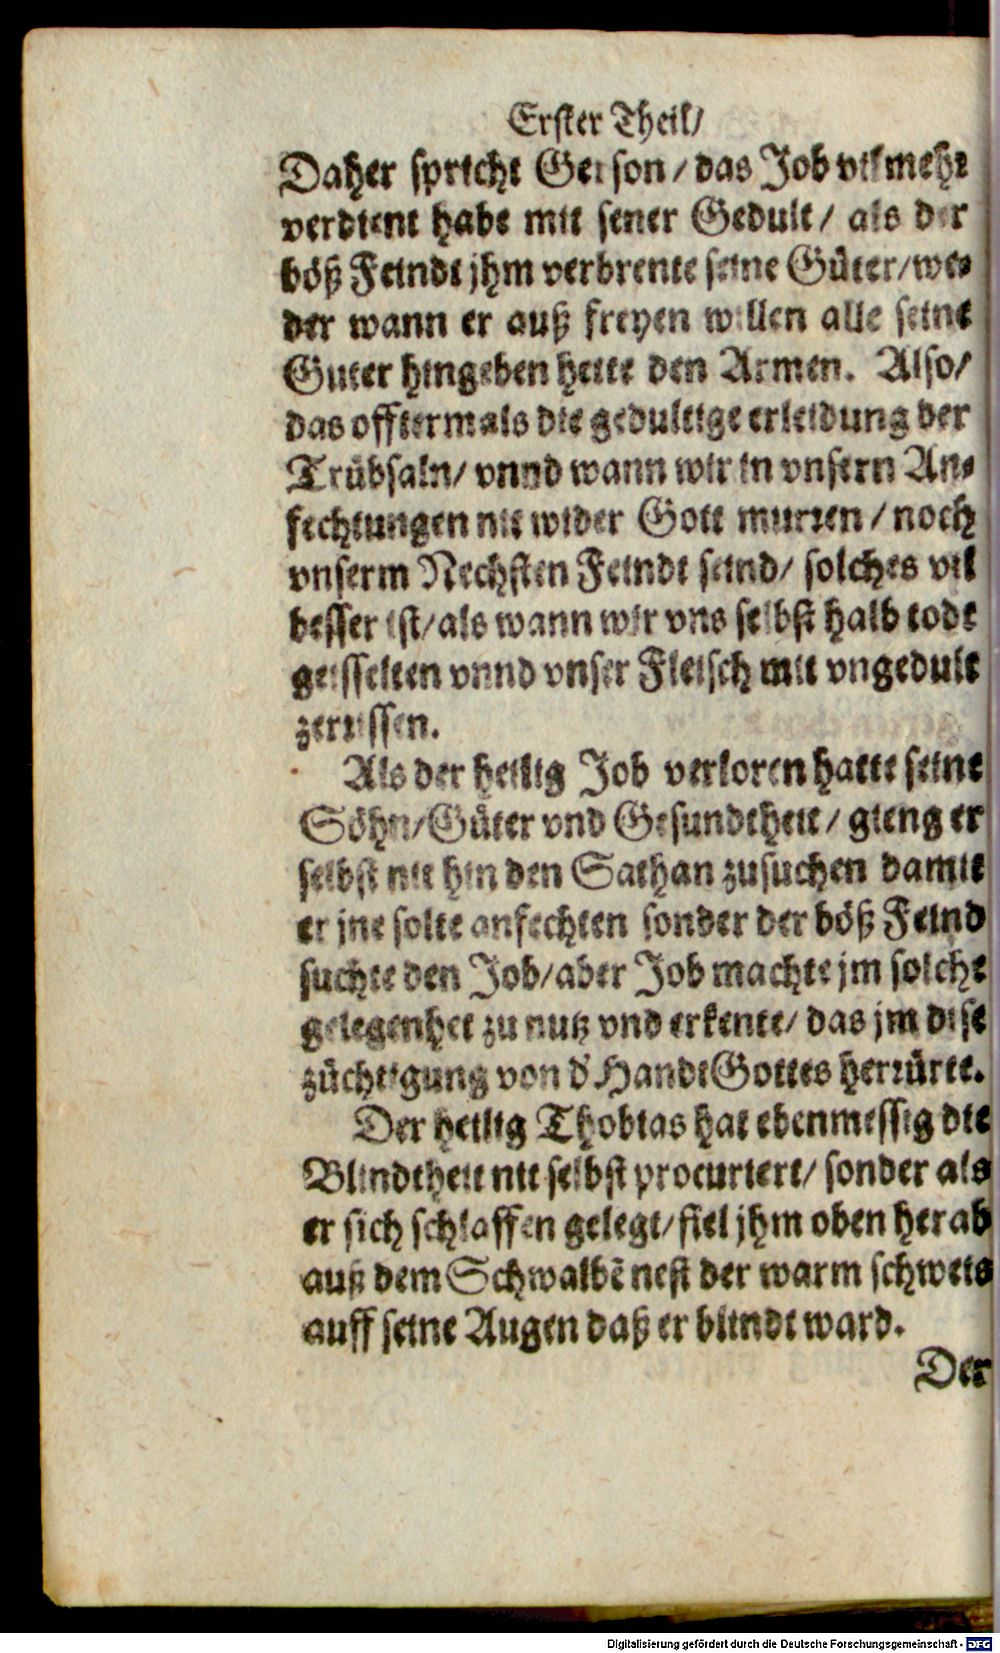 Erster Theil/
Daher spricht Gerson / das Job vilmehr
verdient habe mit sener Gedult / als der
böß Feindt jhm verbrente seine Güter / we-
der wann er auß freyen willen alle seine
Guter hingeben hette den Armen. Also /
das offtermals die gedultige erleidung der
Trübsaln / vnnd wann wir in vnsern An-
fechtungen nit wider Gott murren / noch
vnserm Nechsten Feindt seind / solches vil
besser ist / als wann wir vns selbst halb todt
geisselten vnnd vnser Fleisch mit vngedult
zerrissen.
Als der heilig Job verloren hatte seine
Söhn / Güter vnd Gesundtheit / gieng er
selbst nit hin den Sathan zusuchen damit
er jne solte anfechten sonder der böß Feind
suchte den Job / aber Job machte jm solche
gelegenheit zu nutz vnd erkente / das jm dise
züchtigung von d' Handt Gottes herrürte.
Der heilig Thobias hat ebenmessig die
Blindtheit nit selbst procuriert / sonder als
er sich schlaffen gelegt / fiel jhm oben herab
auß dem Schwalbē nest der warm schweis
auff seine Augen daß er blindt ward.
Der
Digitalisierung gefördert durch die Deutsche Forschungsgemeinschaft - DFG